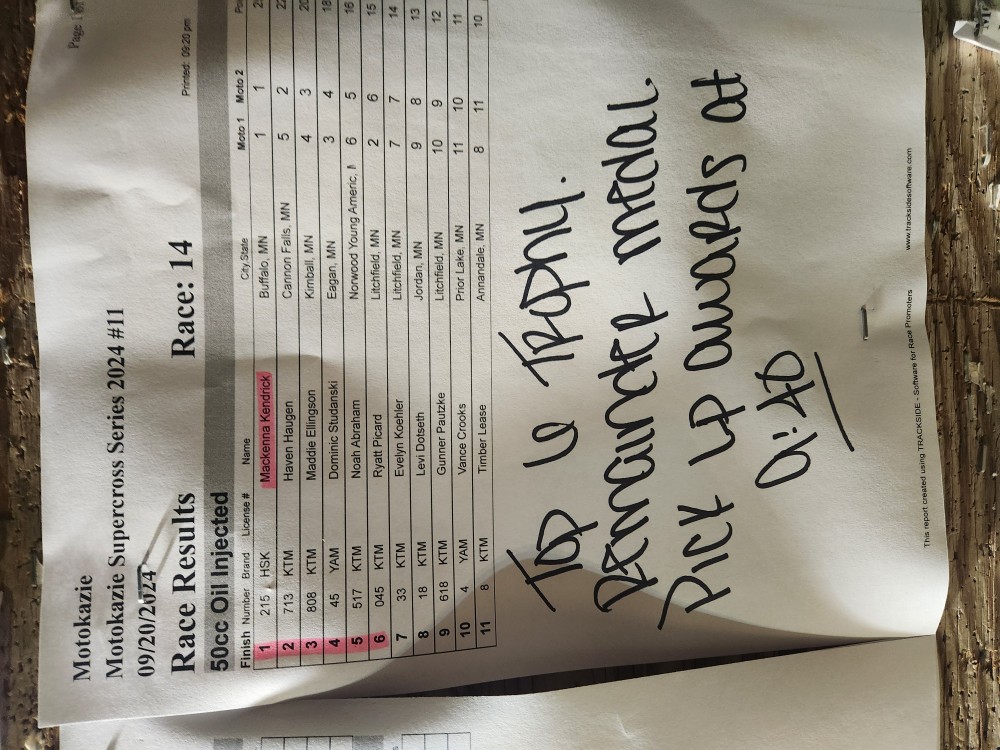 Page 1 of
Printed: 09:20 pm
Motokazie
Motokazie Supercross Series 2024 #11
09/20/2024
Race Results Race: 14
50cc Oil Injected
Finish Number Brand License # Name City,State Moto 1 Moto 2
1 215 HSK Mackenna Kendrick Buffalo, MN 1 1
2 713 KTM Haven Haugen Cannon Falls, MN 5 2 22
3 808 KTM Maddie Ellingson Kimball, MN 4 3 20
4 45 YAM Dominic Studanski Eagan, MN 3 4 18
5 517 KTM Noah Abraham Norwood Young Americ, 6 5 16
6 045 KTM Ryatt Picard Litchfield, MN 2 6 15
7 33 KTM Evelyn Koehler Litchfield, MN 7 7 14
8 18 KTM Levi Dotseth Jordan, MN 9 8 13
9 618 KTM Gunner Pautzke Litchfield, MN 10 9 12
10 4 YAM Vance Crooks Prior Lake, MN 11 10 11
11 8 KTM Timber Lease Annandale, MN 8 11 10
Top 6 Trophy.
Remainder medal.
Pick up awards at
9:40
This report created using TRACKSIDE - Software for Race Promoters www.tracksidesoftware.com